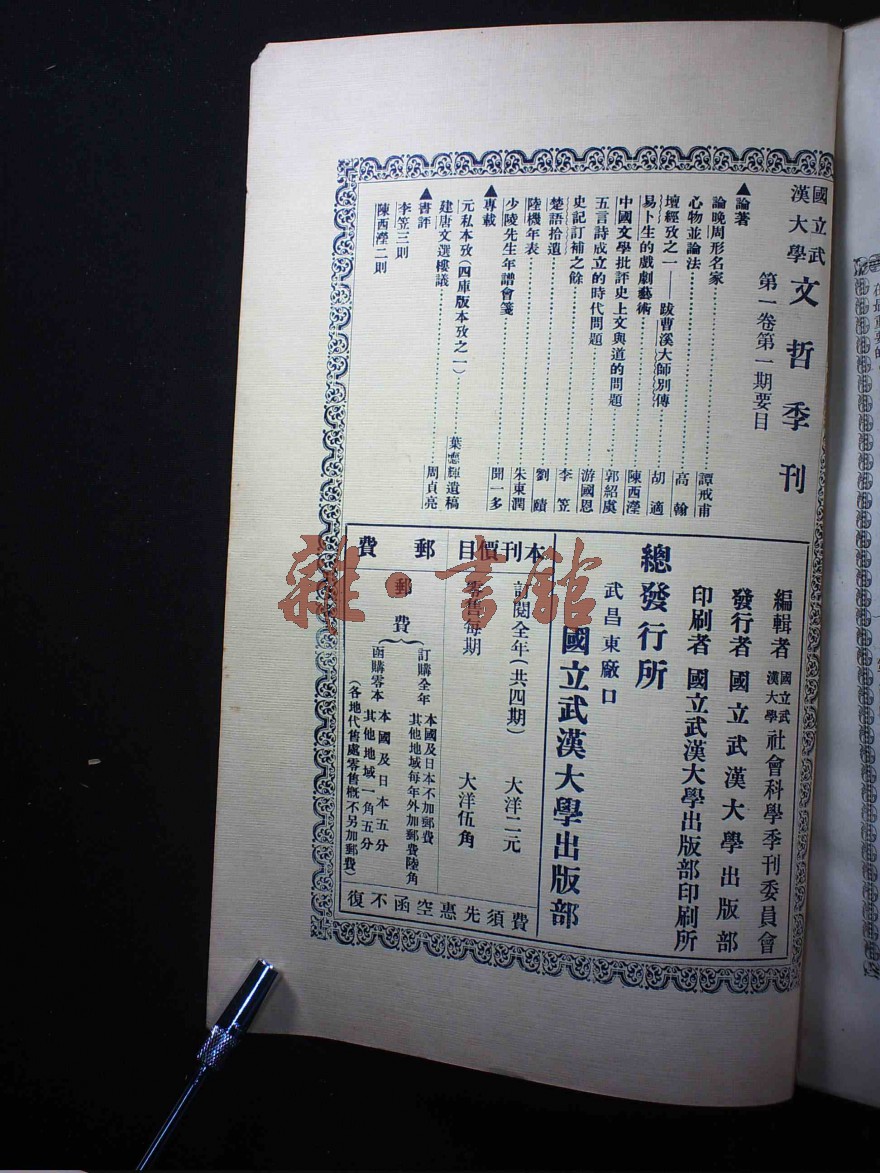 國立武漢大學 文哲季刊
第一卷第一期要目
▲論著
論晚周形名家……譚戒甫
心物並論法……高翰
壇經攷之一——跋曹溪大師別傳……胡適
易卜生的戲劇藝術……陳西瀅
中國文學批評史上文與道的問題……郭紹虞
五言詩成立的時代問題……游國恩
史記訂補之餘……李笠
楚語拾遺……劉賾
陸機年表……朱東潤
少陵先生年譜會箋……聞一多
▲專載
元私本攷(四庫版本攷之一)……葉德輝遺稿
建唐文選樓議……周貞亮
▲書評
李笠三則
陳西瀅二則
編輯者 國立武漢大學社會科學季刊委員會
發行者 國立武漢大學出版部
印刷者 國立武漢大學出版部印刷所
總發行所
武昌東廠口
國立武漢大學出版部
本刊價目
訂閱全年(共四期) 大洋二元
零售每期 大洋伍角
郵費
郵費
訂購全年 本國及日本不加郵費
其他地域每年外加郵費陸角
函購零本 本國及日本五分
其他地域一角五分
(各地代售處零售概不另加郵費)
費須先惠空函不復
雜·書館